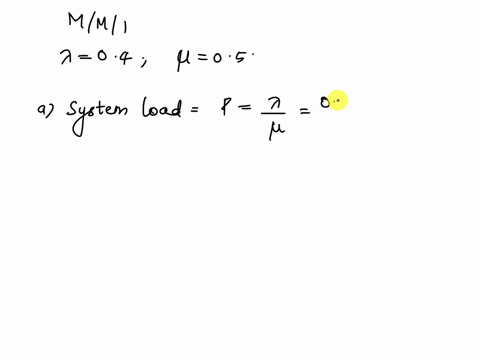 M/M/1
λ = 0.4 ; μ = 0.5.
a) System load = P = λ/μ = 0.